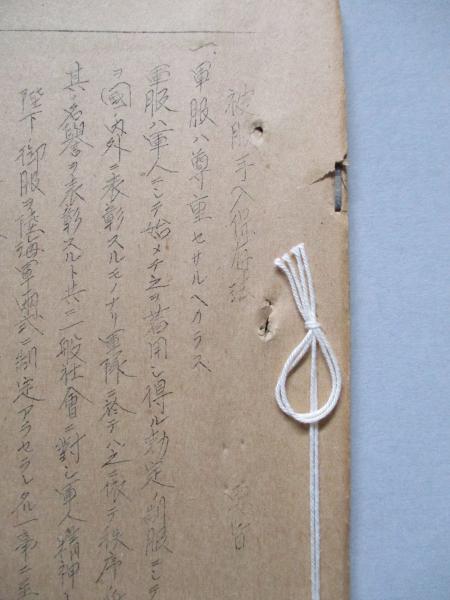 被服手入保存法 要旨
一、軍服ハ尊重セサルヘカラス
軍服ハ軍人ニシテ始メテ之ヲ着用シ得ル勅定ノ制服ニシテ
ヲ國ノ内外ニ表彰スルモノナリ軍隊ニ於テハ之ニ依テ秩序
其ノ名譽ヲ表彰スルト共ニ一般社會ニ對シ軍人精神
陛下御服ヲ陸海軍ニ制定アラセラレ